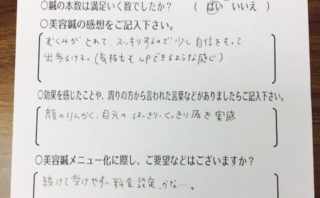 ○鍼の本数は満足いく数でしたか? ( はい いいえ )
○美容鍼の感想をご記入下さい。
むくみがとれて、スッキリするので少し自信をもって
出歩ける。(気持もupできるような感じ)
○効果を感じたことや、周りの方から言われた言葉などがありましたらご記入下さい。
顔のりんかく、目元の はっきり、くっきり 感を 実感
○美容鍼メニュー化に際し、ご要望などはございますか?
続けて受けやすい 料金設定 かな…。